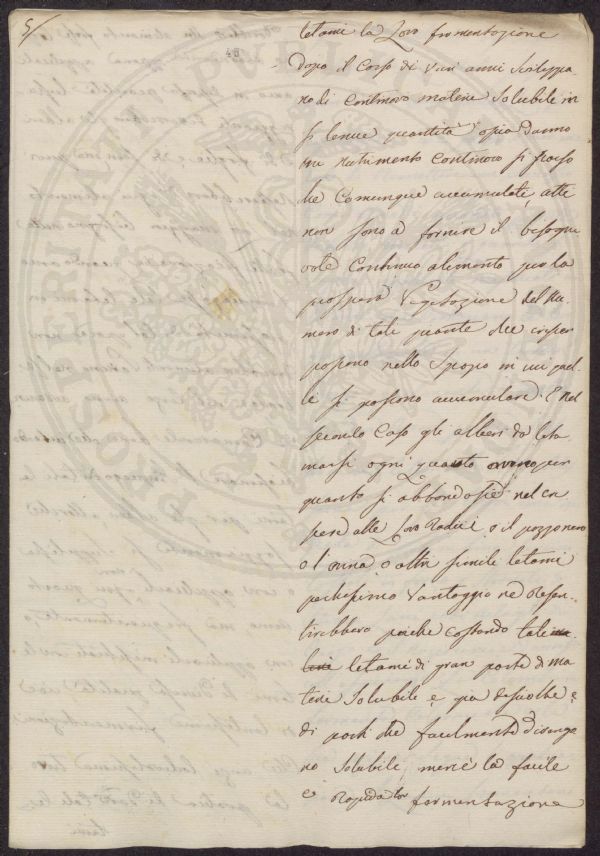 5/
48
letami la Loro fromentazione
dopo il Corso di Varj anni Sviluppa
no di Continovo materie Solubili in
si tenue quantità o sia danno
un nutrimento Continovo si scarso
che Comunque accumulati, atti
non sono a fornire il bisogne
vole Continuo alimento per la
prospera Vegetazione del Nu
mero di tali piante che cresser
possono nello Spazio in cui quel
le si possono accumulare. E nel
secondo Caso gli alberi da leta
marsi ogni Quanto per
quanto si abbondasse nel co
perse alle Loro Radici o il pozzonero
o l'orina o altri simili letami
pochissimo Vantaggio ne Risen
tirebbero poiche costando tali
letami di gran parte di ma
terie Solubili e già disciolte e
di parti che facilmente divenga
no Solubili, mercè la facile
e Rapida lor fermentazione